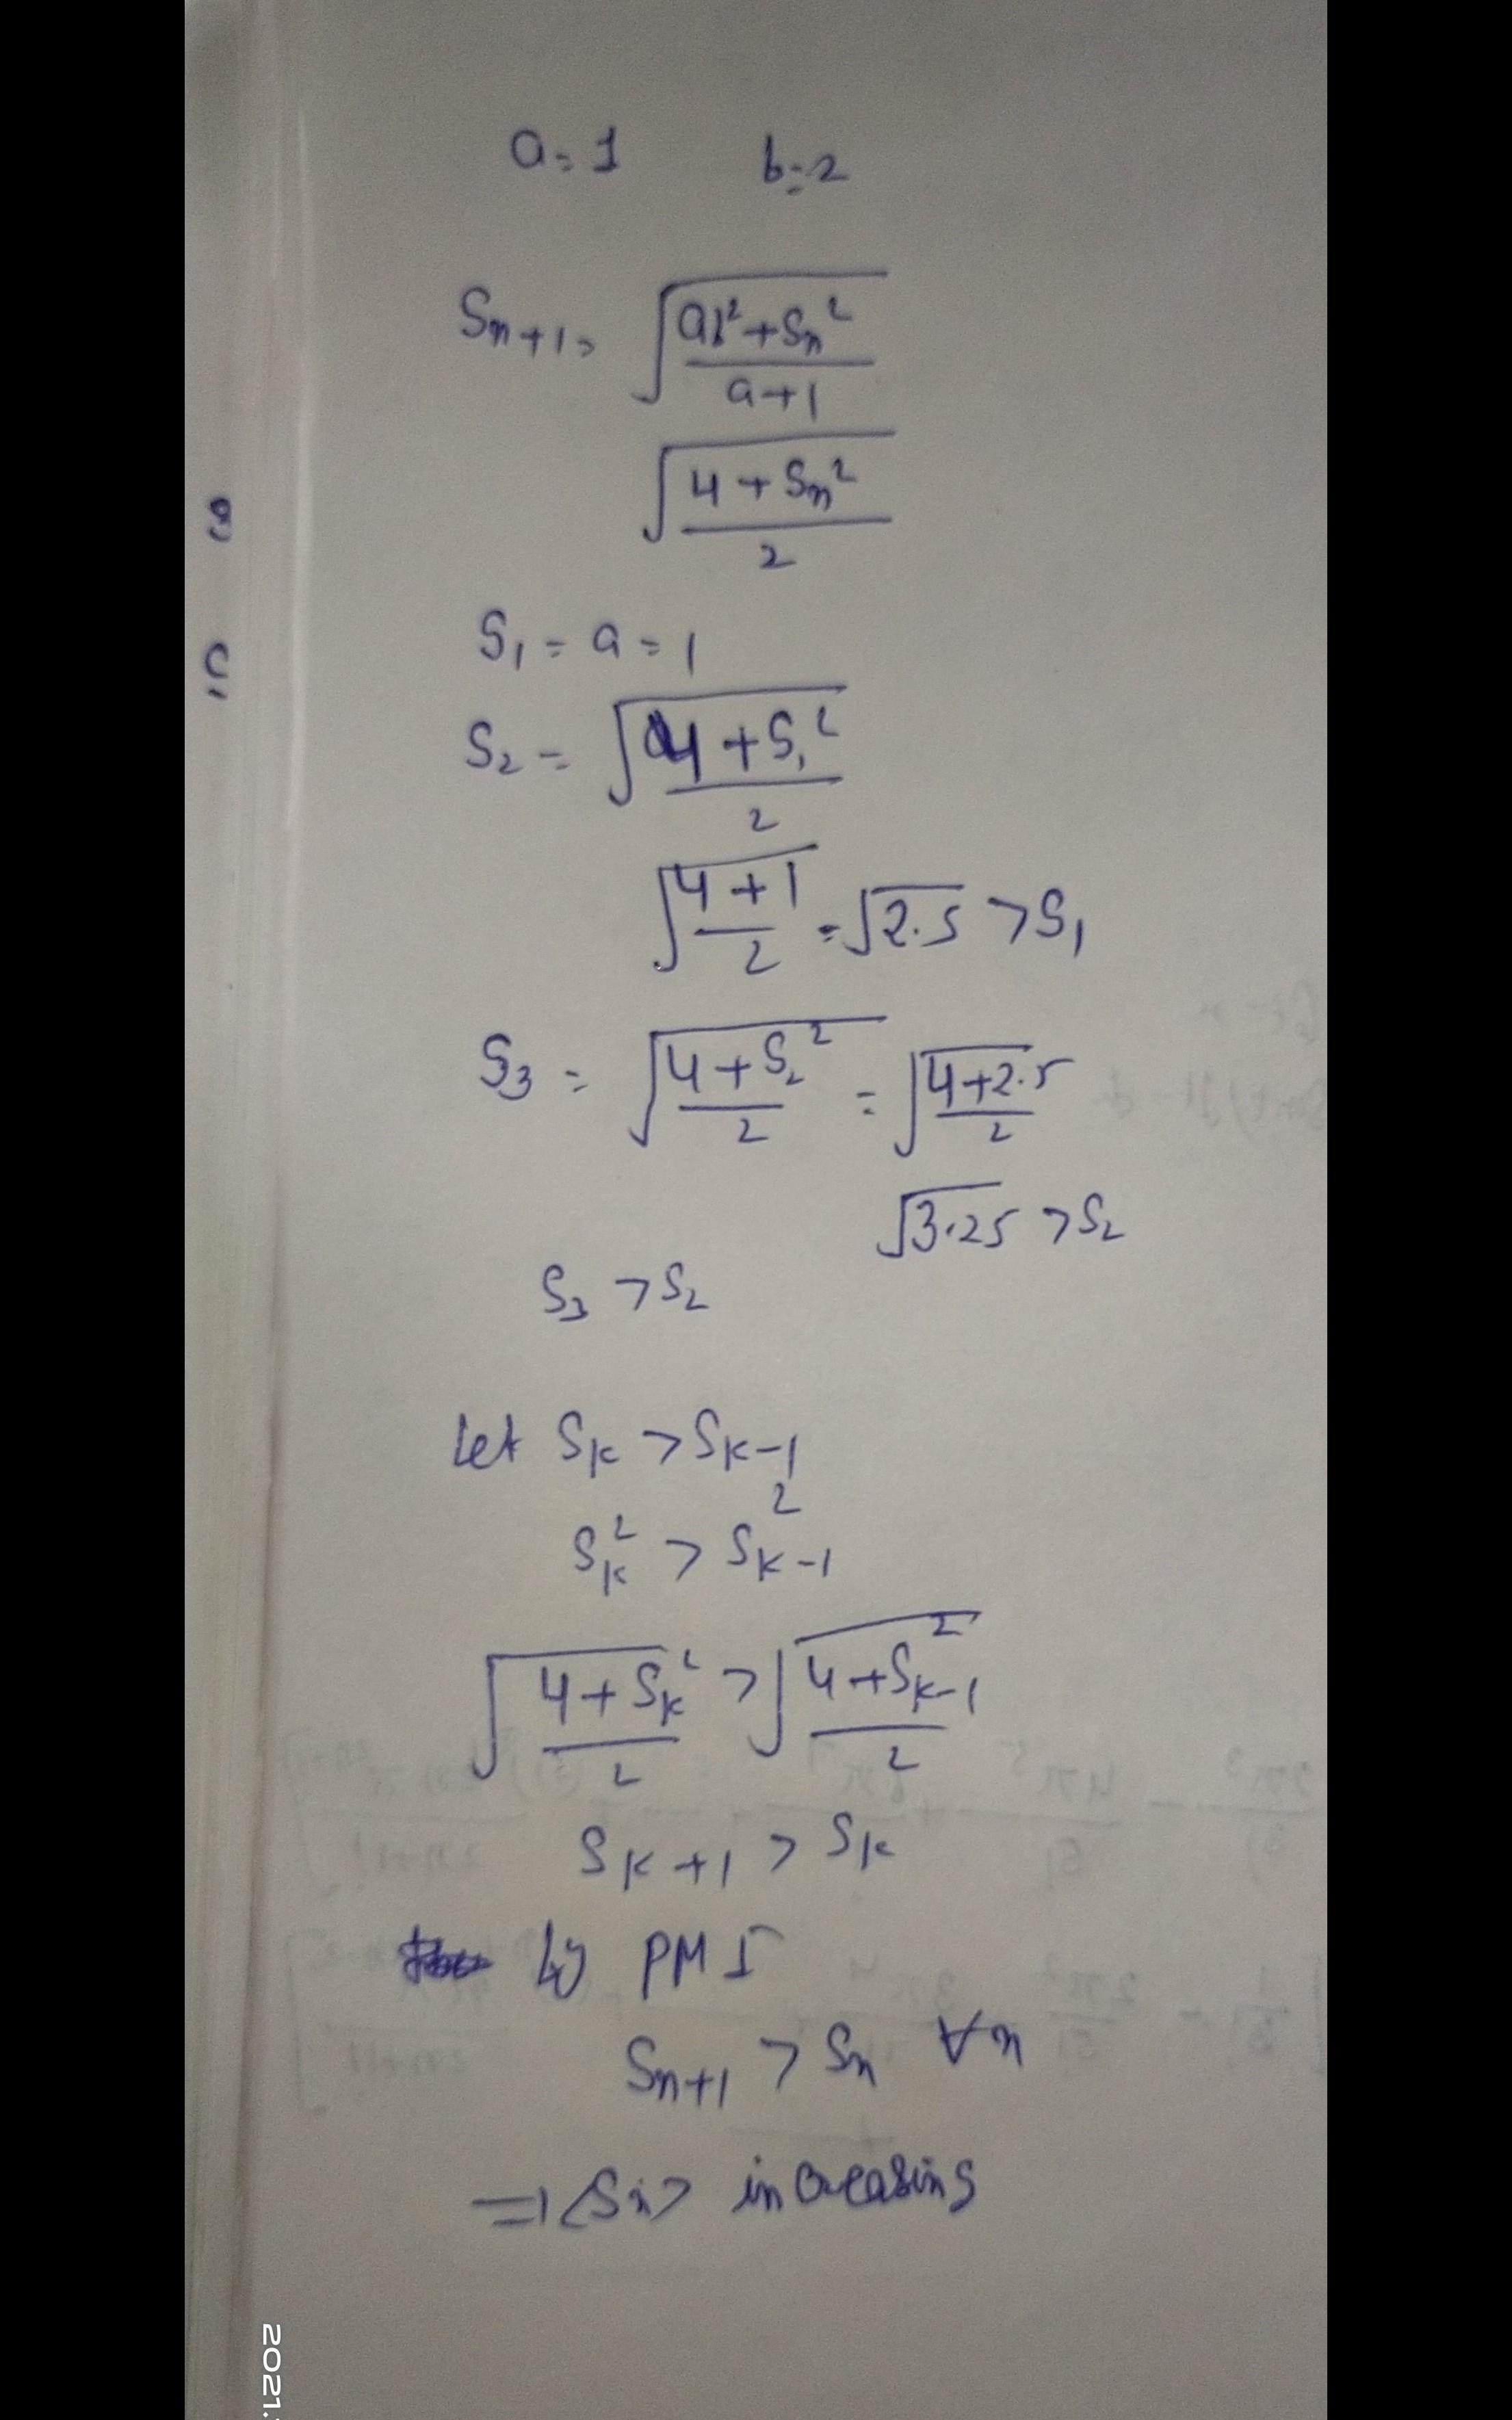 a = 1 b = 2
Sn+1 = √((ab²+Sn²)/(a+1))
√((4+Sn²)/2)
S1 = a = 1
S2 = √((4+S1²)/2)
√((4+1)/2) = √2.5 > S1
S3 = √((4+S2²)/2) = √((4+2.5)/2)
√3.25 > S2
S3 > S2
Let Sk > Sk-1
Sk² > Sk-1²
√((4+Sk²)/2) > √((4+Sk-1²)/2)
Sk+1 > Sk
by PMI
Sn+1 > Sn ∀n
=> <Sn> increasing
2021.